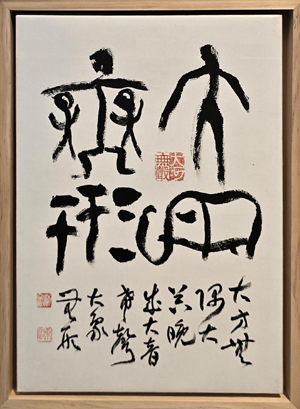 大象
無形
大方無
隅大
器晚
成大音
希聲
大象
無形